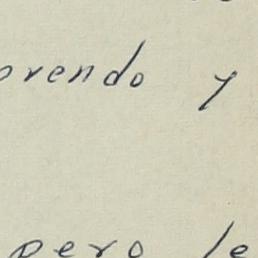 prendo y
pero le